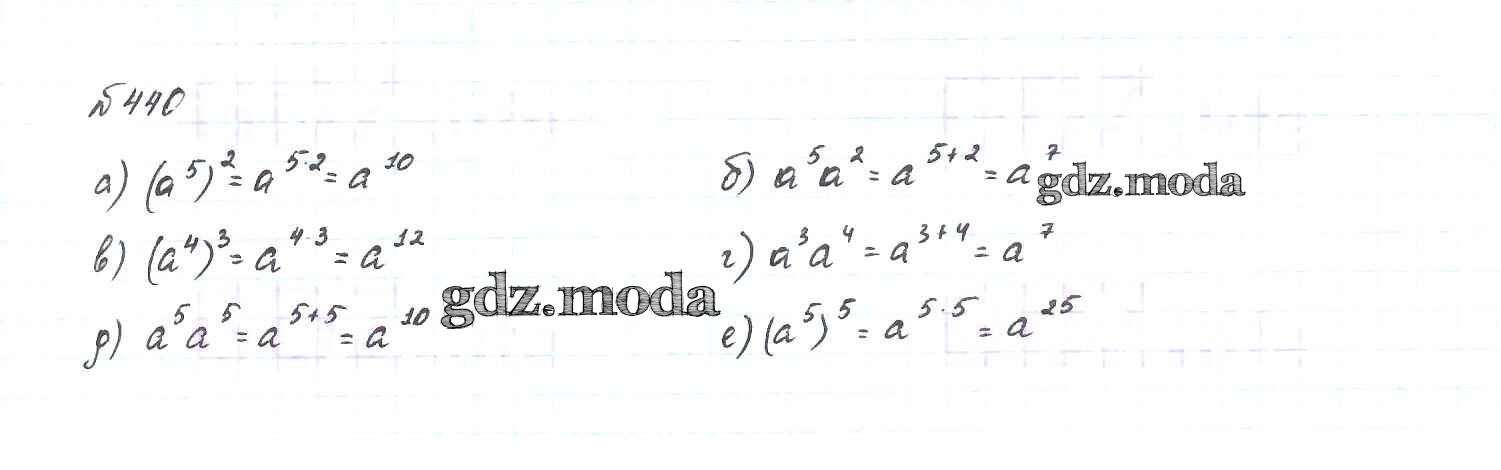 №440
а) (a⁵)² = a⁵·² = a¹⁰ б) a⁵a² = a⁵⁺² = a⁷ gdz.moda
в) (a⁴)³ = a⁴·³ = a¹² г) a³a⁴ = a³⁺⁴ = a⁷
gdz.moda
д) a⁵a⁵ = a⁵⁺⁵ = a¹⁰ е) (a⁵)⁵ = a⁵·⁵ = a²⁵